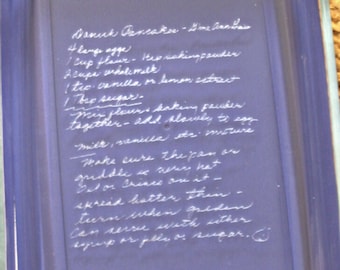 Danish Pancakes -
4 large eggs
1 cup flour - 1 tsp baking powder
2 cups whole milk
1 tsp vanilla or lemon extract
1 Tbsp sugar -
Mix flour & baking powder
together - add slowly to egg
milk, vanilla etc. mixture
Make sure the pan or
griddle is very hot
on it -
spread batter thin -
turn when golden
Can serve with either
syrup or jelly or sugar.